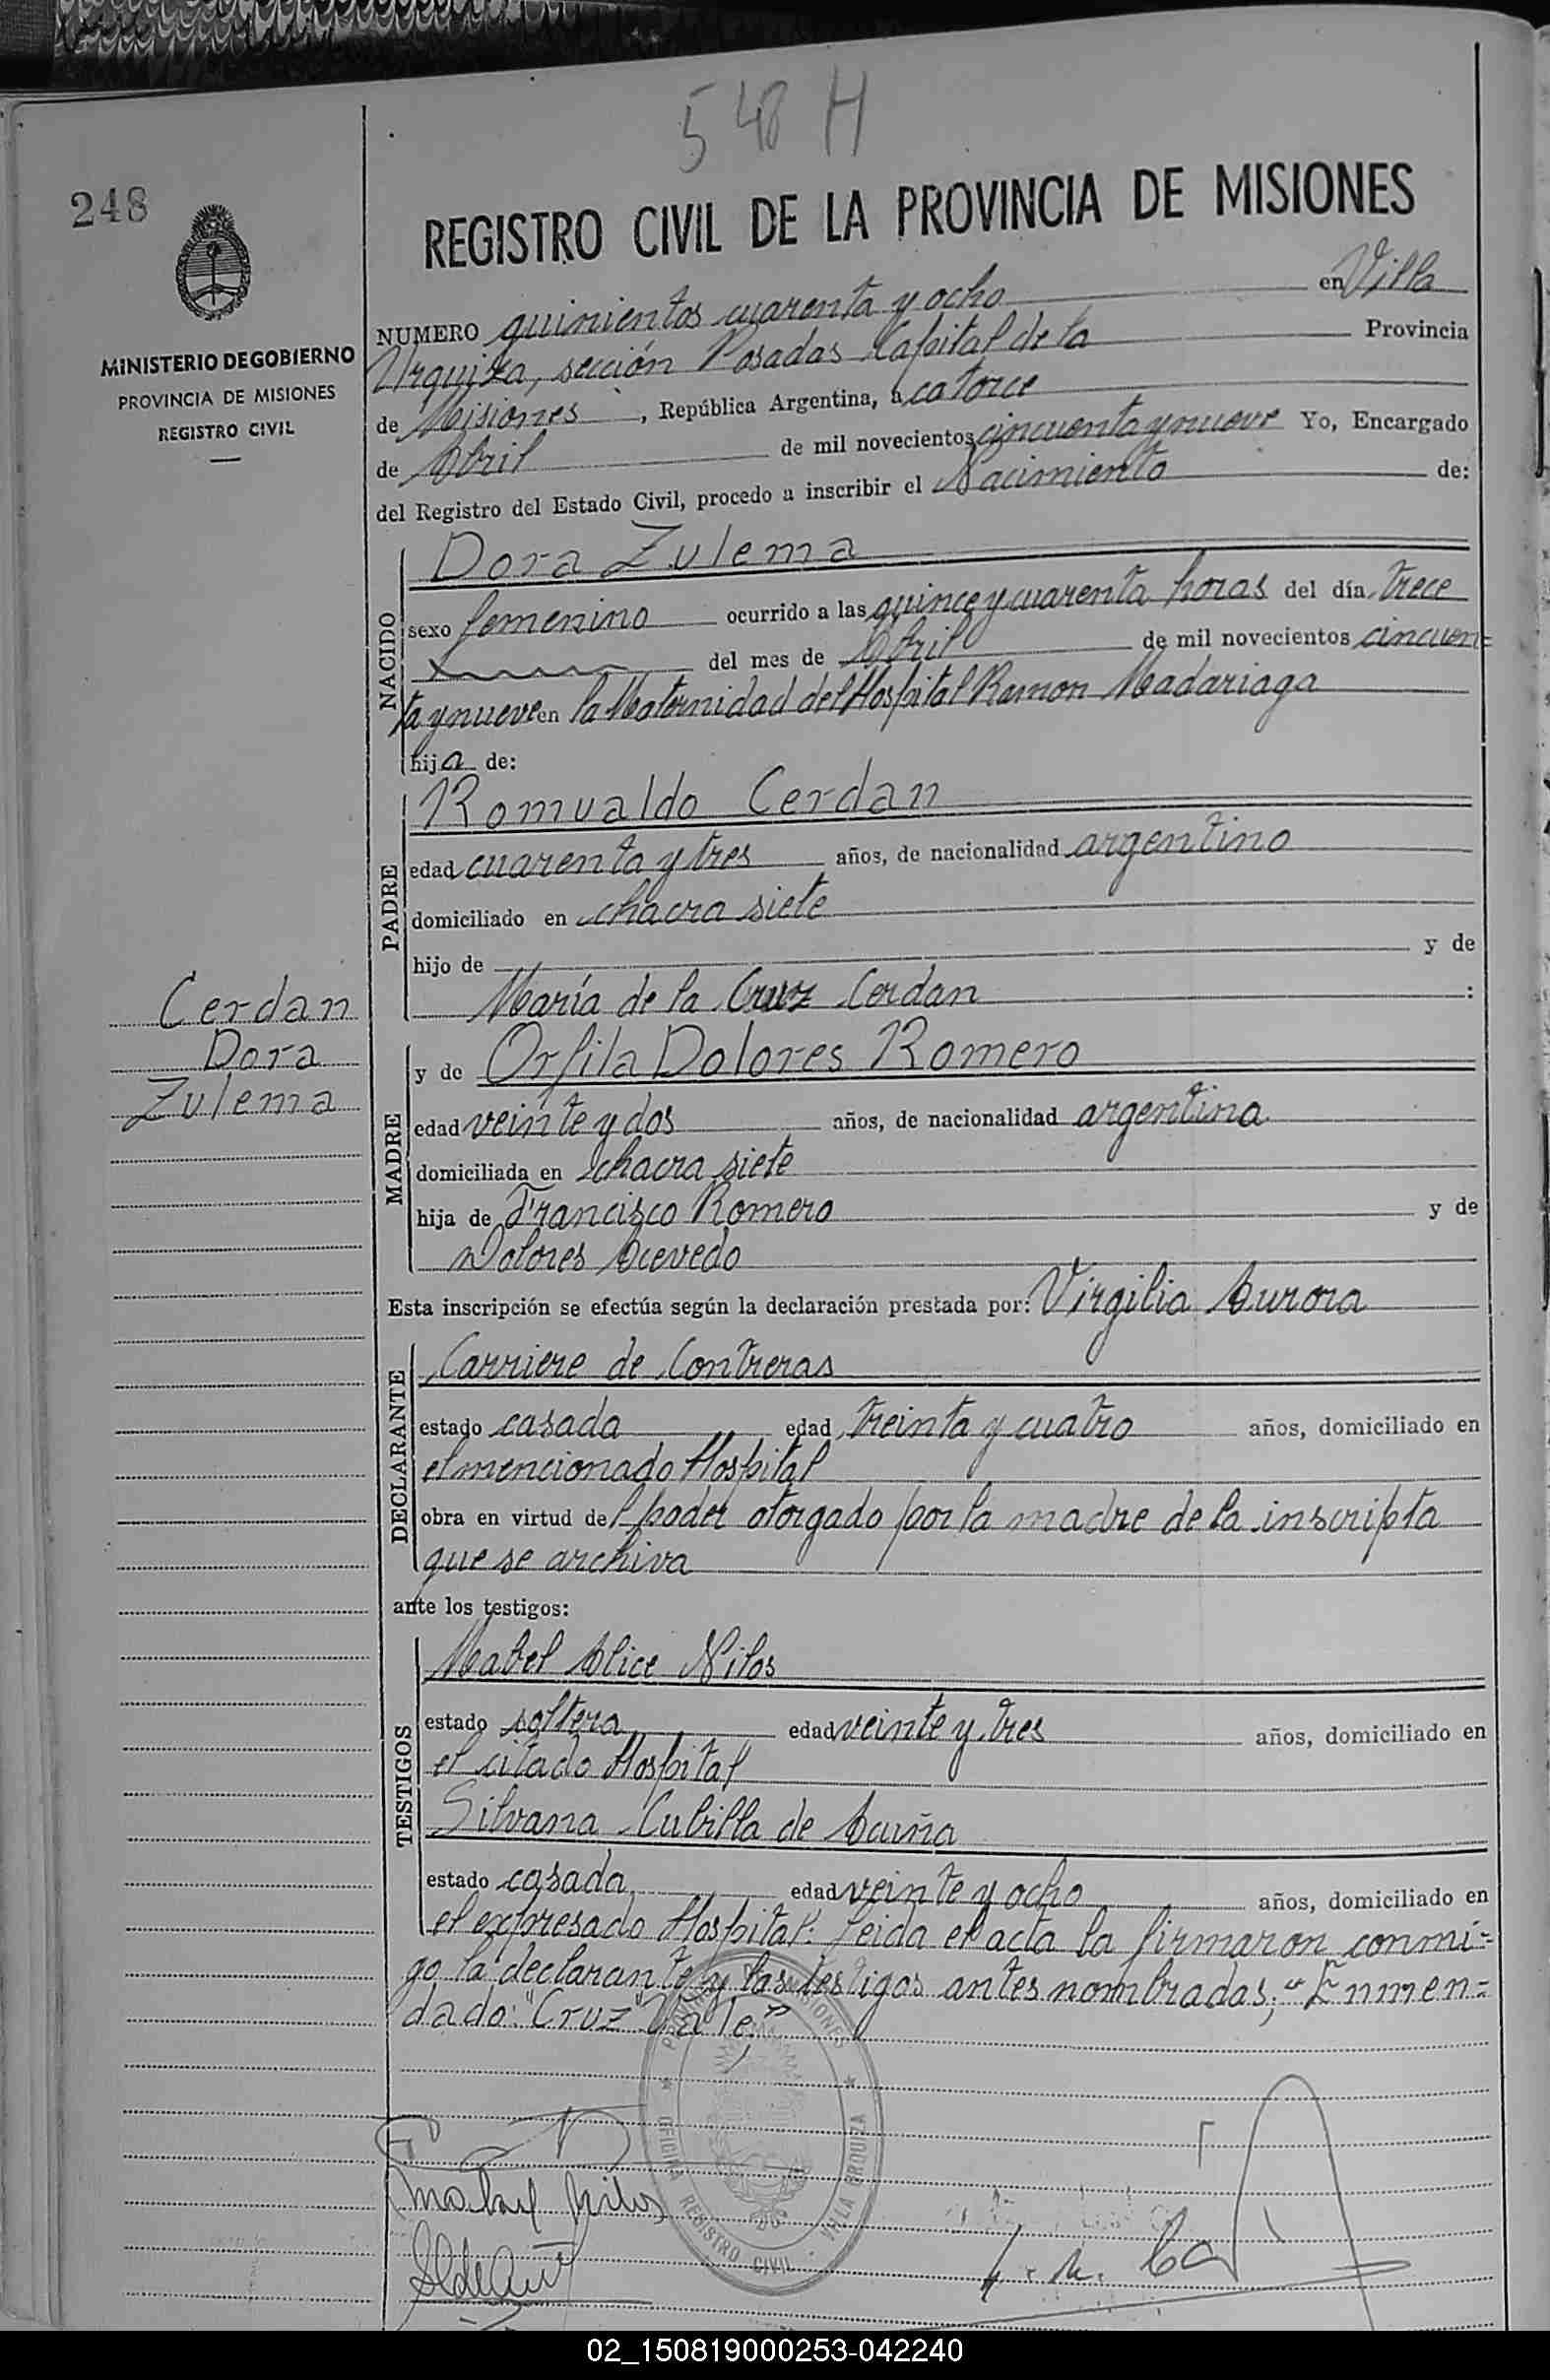 548 H
248
REGISTRO CIVIL DE LA PROVINCIA DE MISIONES
MINISTERIO DE GOBIERNO
PROVINCIA DE MISIONES
REGISTRO CIVIL
NUMERO quinientos cuarenta y ocho en Villa
Urquiza, sección Posadas Capital de la Provincia
de Misiones, República Argentina, a catorce
de Abril de mil novecientos cincuenta y nueve Yo, Encargado
del Registro del Estado Civil, procedo a inscribir el Nacimiento de:
NACIDO
Dora Zulema
sexo femenino ocurrido a las quince y cuarenta horas del día trece
del mes de Abril de mil novecientos cincuen=
ta y nueve en la Maternidad del Hospital Ramon Madariaga
hija de:
PADRE
Romualdo Cerdan
edad cuarenta y tres años, de nacionalidad argentino
domiciliado en chacra siete
hijo de y de
María de la Cruz Cerdan :
Cerdan
Dora
Zulema
MADRE
y de Orfila Dolores Romero
edad veinte y dos años, de nacionalidad argentina
domiciliada en chacra siete
hija de Francisco Romero y de
Dolores Acevedo
Esta inscripción se efectúa según la declaración prestada por: Virgilia Aurora
DECLARANTE
Carriere de Contreras
estado casada edad treinta y cuatro años, domiciliado en
el mencionado Hospital
obra en virtud del poder otorgado por la madre de la inscripta
que se archiva
ante los testigos:
TESTIGOS
Mabel Alice Nilos
estado soltera edad veinte y tres años, domiciliado en
el citado Hospital
Silvana Cubilla de Acuña
estado casada edad veinte y ocho años, domiciliado en
el expresado Hospital: Leida el acta la firmaron conmi=
go la declarante y las testigos antes nombradas; "Enmen=
dado: "Cruz" Vale."
PROVINCIA DE MISIONES
OFICINA REGISTRO CIVIL - VILLA URQUIZA
Mabel Nilos
02_150819000253-042240